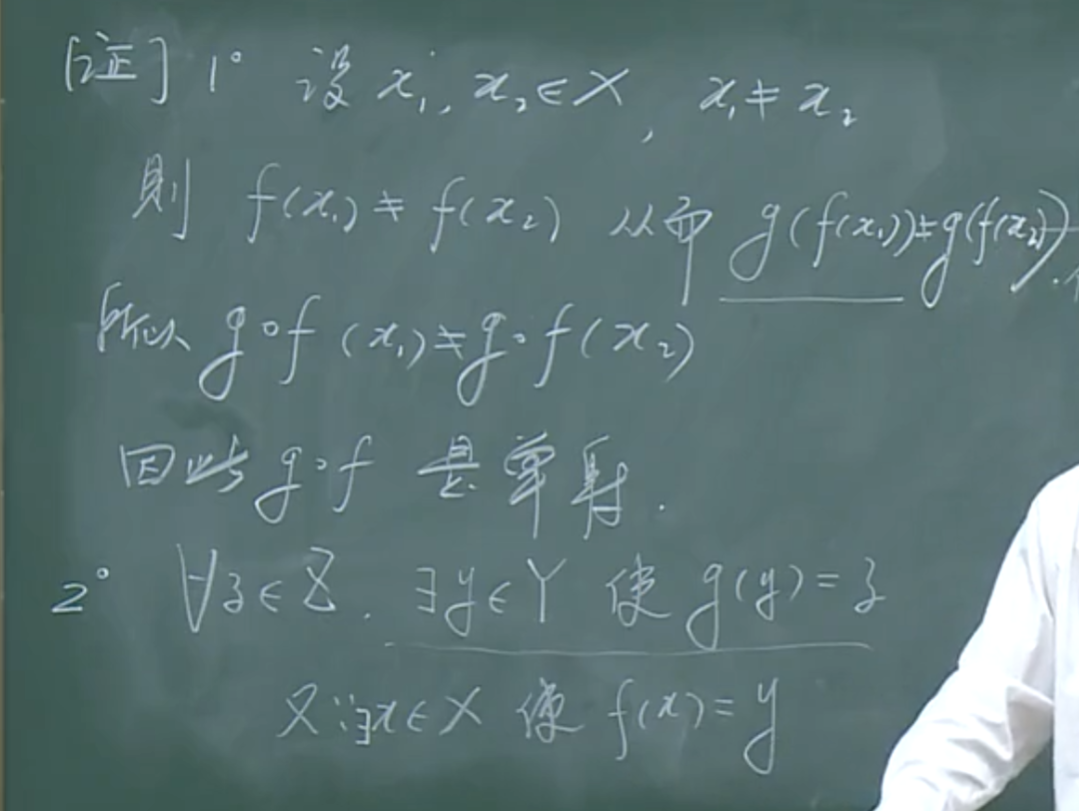 [证] 1° 设 x₁, x₂∈X, x₁≠x₂
則 f(x₁)≠f(x₂) 从而 g(f(x₁))≠g(f(x₂)).
所以 g∘f(x₁)≠g∘f(x₂)
因此 g∘f 是单射.
2° ∀z∈Z. ∃y∈Y 使 g(y)=z
又∵∃x∈X 使 f(x)=y